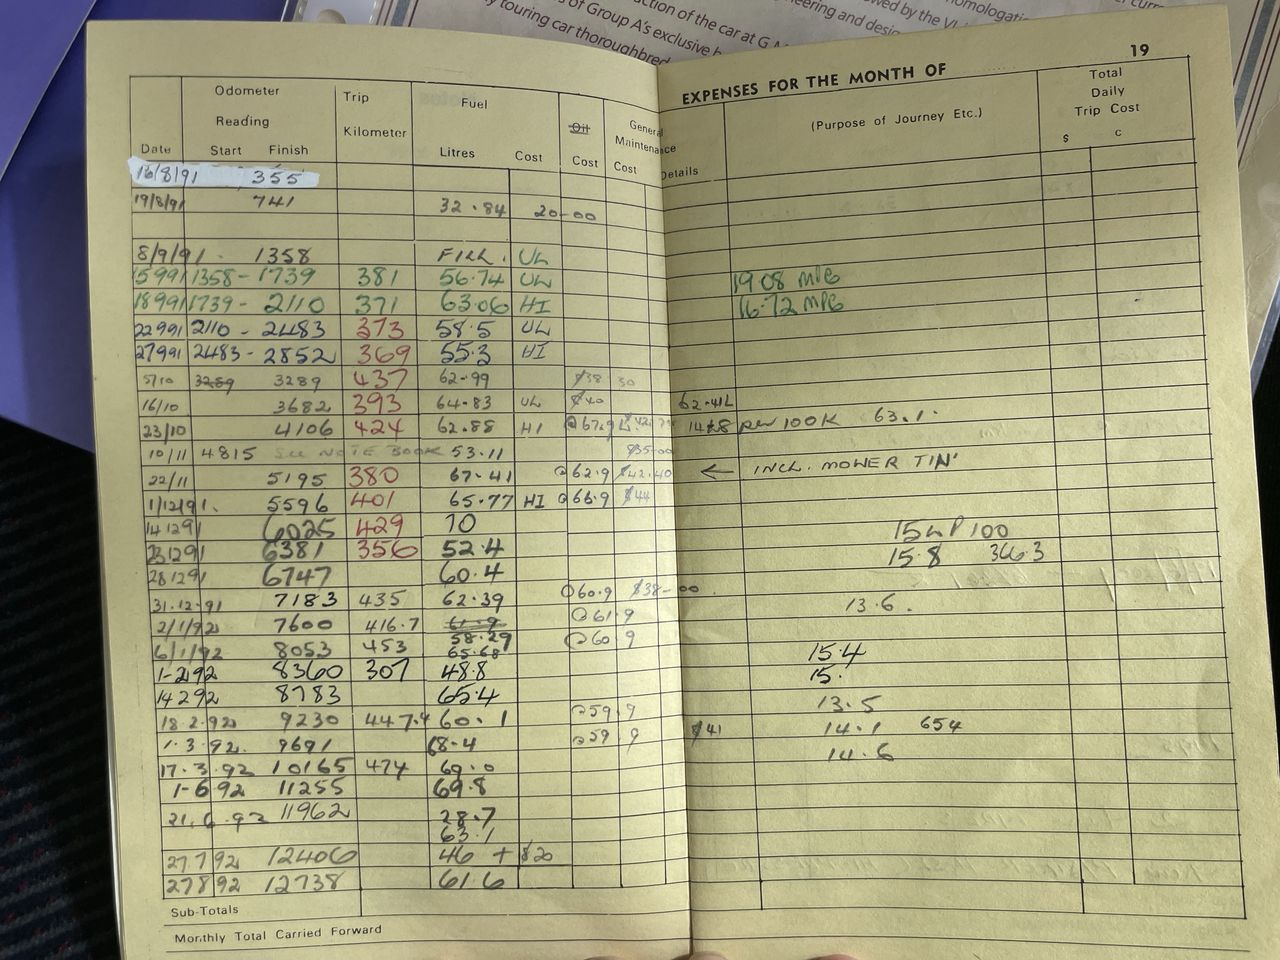 of Group A's exclusive
touring car thoroughbred
uction of the car at G
neering and desig
owed by the
homologati
19
EXPENSES FOR THE MONTH OF
Date
Odometer Reading
Start Finish
Trip Kilometer
Fuel
Litres Cost
Oil
Cost
General Maintenance
Cost Details
(Purpose of Journey Etc.)
Total Daily Trip Cost
$ c
16/8/91 355
19/8/91 741 32.84 20-00
8/9/91. 1358 FILL. UL
15991 1358-1739 381 56.74 UL 19.08 MPG
18991 1739-2110 371 63.06 HI 16.72 MPG
22991 2110-2483 373 58.5 UL
27991 2483-2852 369 55.3 HI
5/10 3289 3289 437 62.99 $38 30
16/10 3682 393 64.83 UL $40 62.41L
23/10 4106 424 62.88 HI @67.9 14.8 per 100K 63.1.
10/11 4815 SEE NOTE BOOK 53.11 $35-00
22/11 5195 380 67.41 @62.9 $42.40 ← INCL. MOWER TIN'
1/12/91. 5596 401 65.77 HI @66.9 $44
141291 6025 429 70 15 L P 100
231291 6381 356 52.4 15.8 366.3
281291 6747 60.4
31.12.91 7183 435 62.39 @60.9 $38-00 13.6.
2/1/92 7600 416.7 61.9 58.29 @61.9
6/1/92 8053 453 65.68 @60.9
1-2-92 8360 307 48.8 15.4
14292 8783 65.4 15.
18.2.92 9230 447.4 60.1 @59.9 13.5
1.3.92. 9691 68.4 @59.9 $41 14.1 654
17.3.92 10165 474 69.0 14.6
1-6 92 11255 69.8
21.6.92 11962 28.7
63.1
27792 12406 46 + $20
27892 12738 61.6
Sub-Totals
Monthly Total Carried Forward